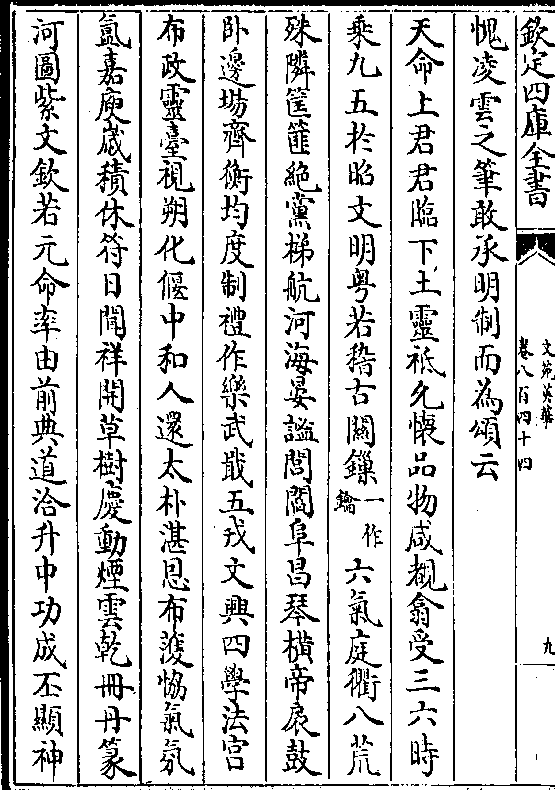 欽定四庫全書
文苑英華
卷八百四十四
九
愧凌雲之筆敢承明制而為頌云
天命上君君臨下土靈祇允懷品物咸覩翕受三六時
乘九五於昭文明粤若稽古闗鏁一作鑰六氣庭衢八荒
殊隣筐篚絶黨梯航河海晏謐閭閻阜昌琴横帝扆鼓
卧邊場齊衡均度制禮作樂武戢五戎文興四學法宫
布政靈臺視朔化偃中和人還太朴湛恩布濩恊氣氛
氲嘉庾嵗積休符日聞祥開草樹慶動煙雲乾冊丹篆
河圖紫文欽若元命率由前典道洽升中功成丕顯神